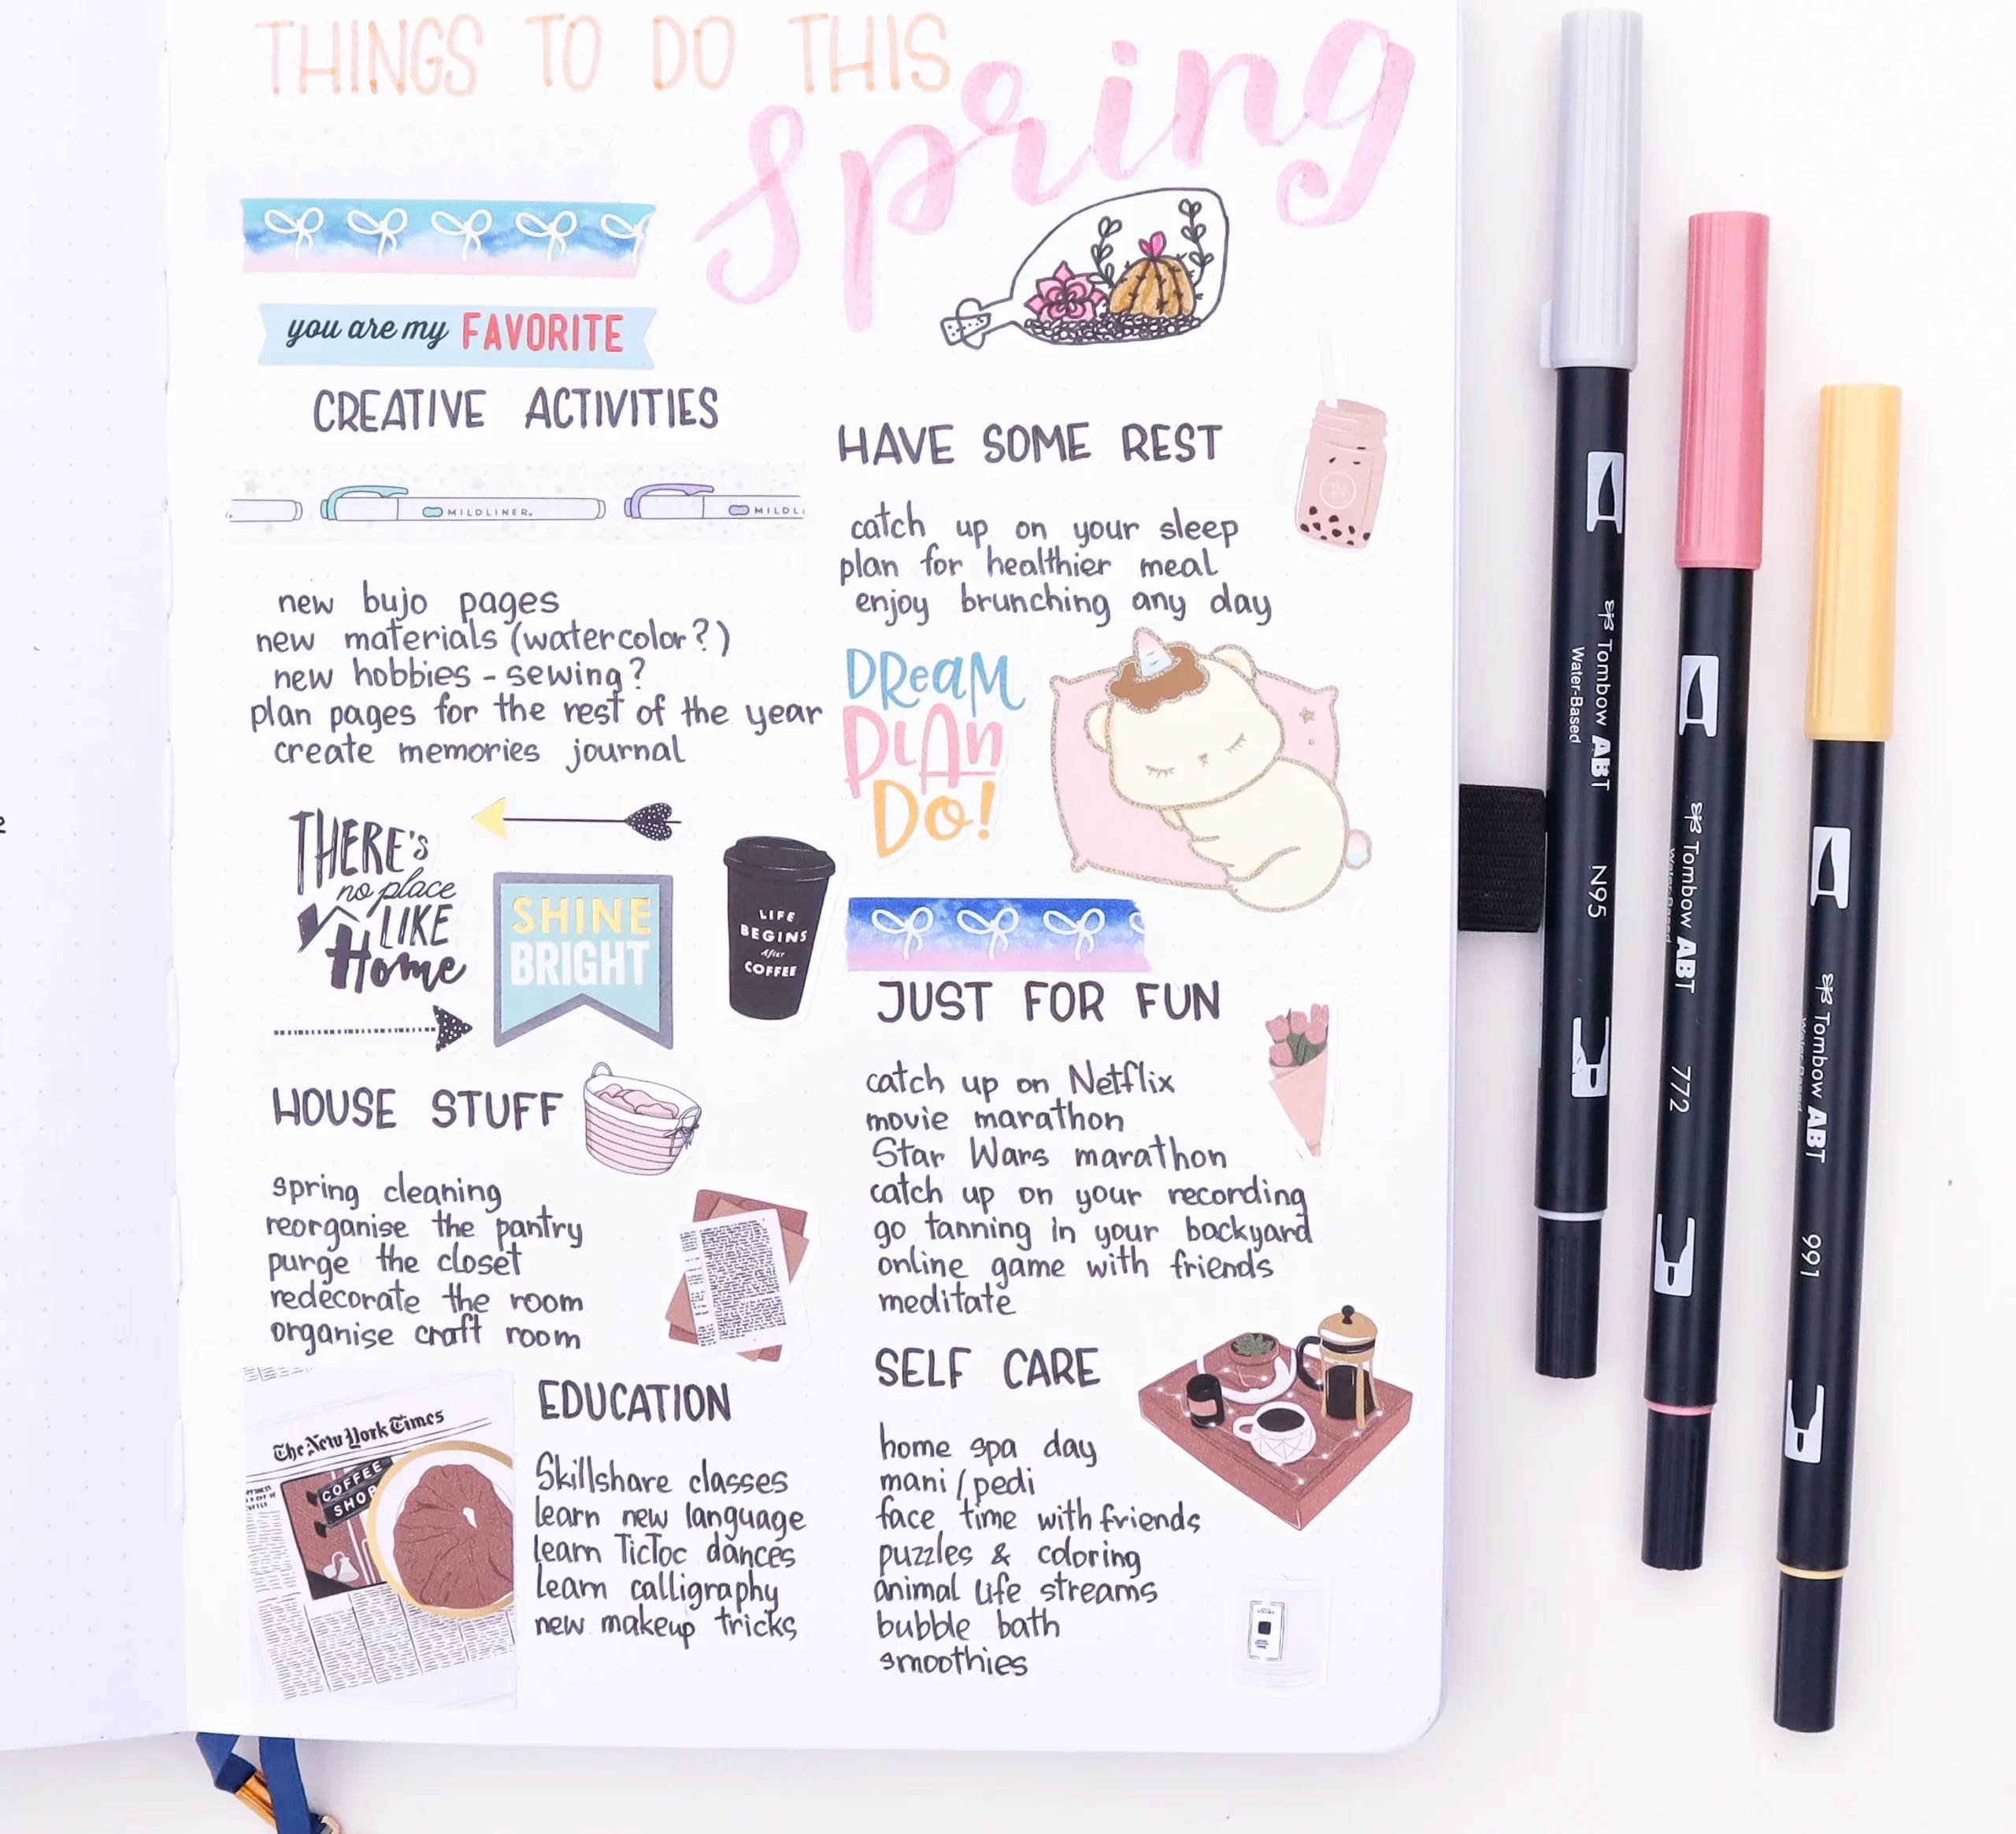 THINGS TO DO THIS
Spring
you are my FAVORITE
CREATIVE ACTIVITIES
MILDLINER
MILDL
new bujo pages
new materials (watercolor?)
new hobbies - sewing?
plan pages for the rest of the year
create memories journal
THERE'S
no place
LIKE
Home
SHINE
BRIGHT
LIFE
BEGINS
After
COFFEE
HOUSE STUFF
spring cleaning
reorganise the pantry
purge the closet
redecorate the room
organise craft room
The New York Times
COFFEE
SHOP
EDUCATION
Skillshare classes
learn new language
learn TicToc dances
learn calligraphy
new makeup tricks
HAVE SOME REST
catch up on your sleep
plan for healthier meal
enjoy brunching any day
DREAM
PLAN
DO!
JUST FOR FUN
catch up on Netflix
movie marathon
Star Wars marathon
catch up on your recording
go tanning in your backyard
online game with friends
meditate
SELF CARE
home spa day
mani/pedi
face time with friends
puzzles & coloring
animal life streams
bubble bath
smoothies
Tombow ABT N95
Water-Based
Tombow ABT 772
Water-Based
Tombow ABT 991
Water-Based